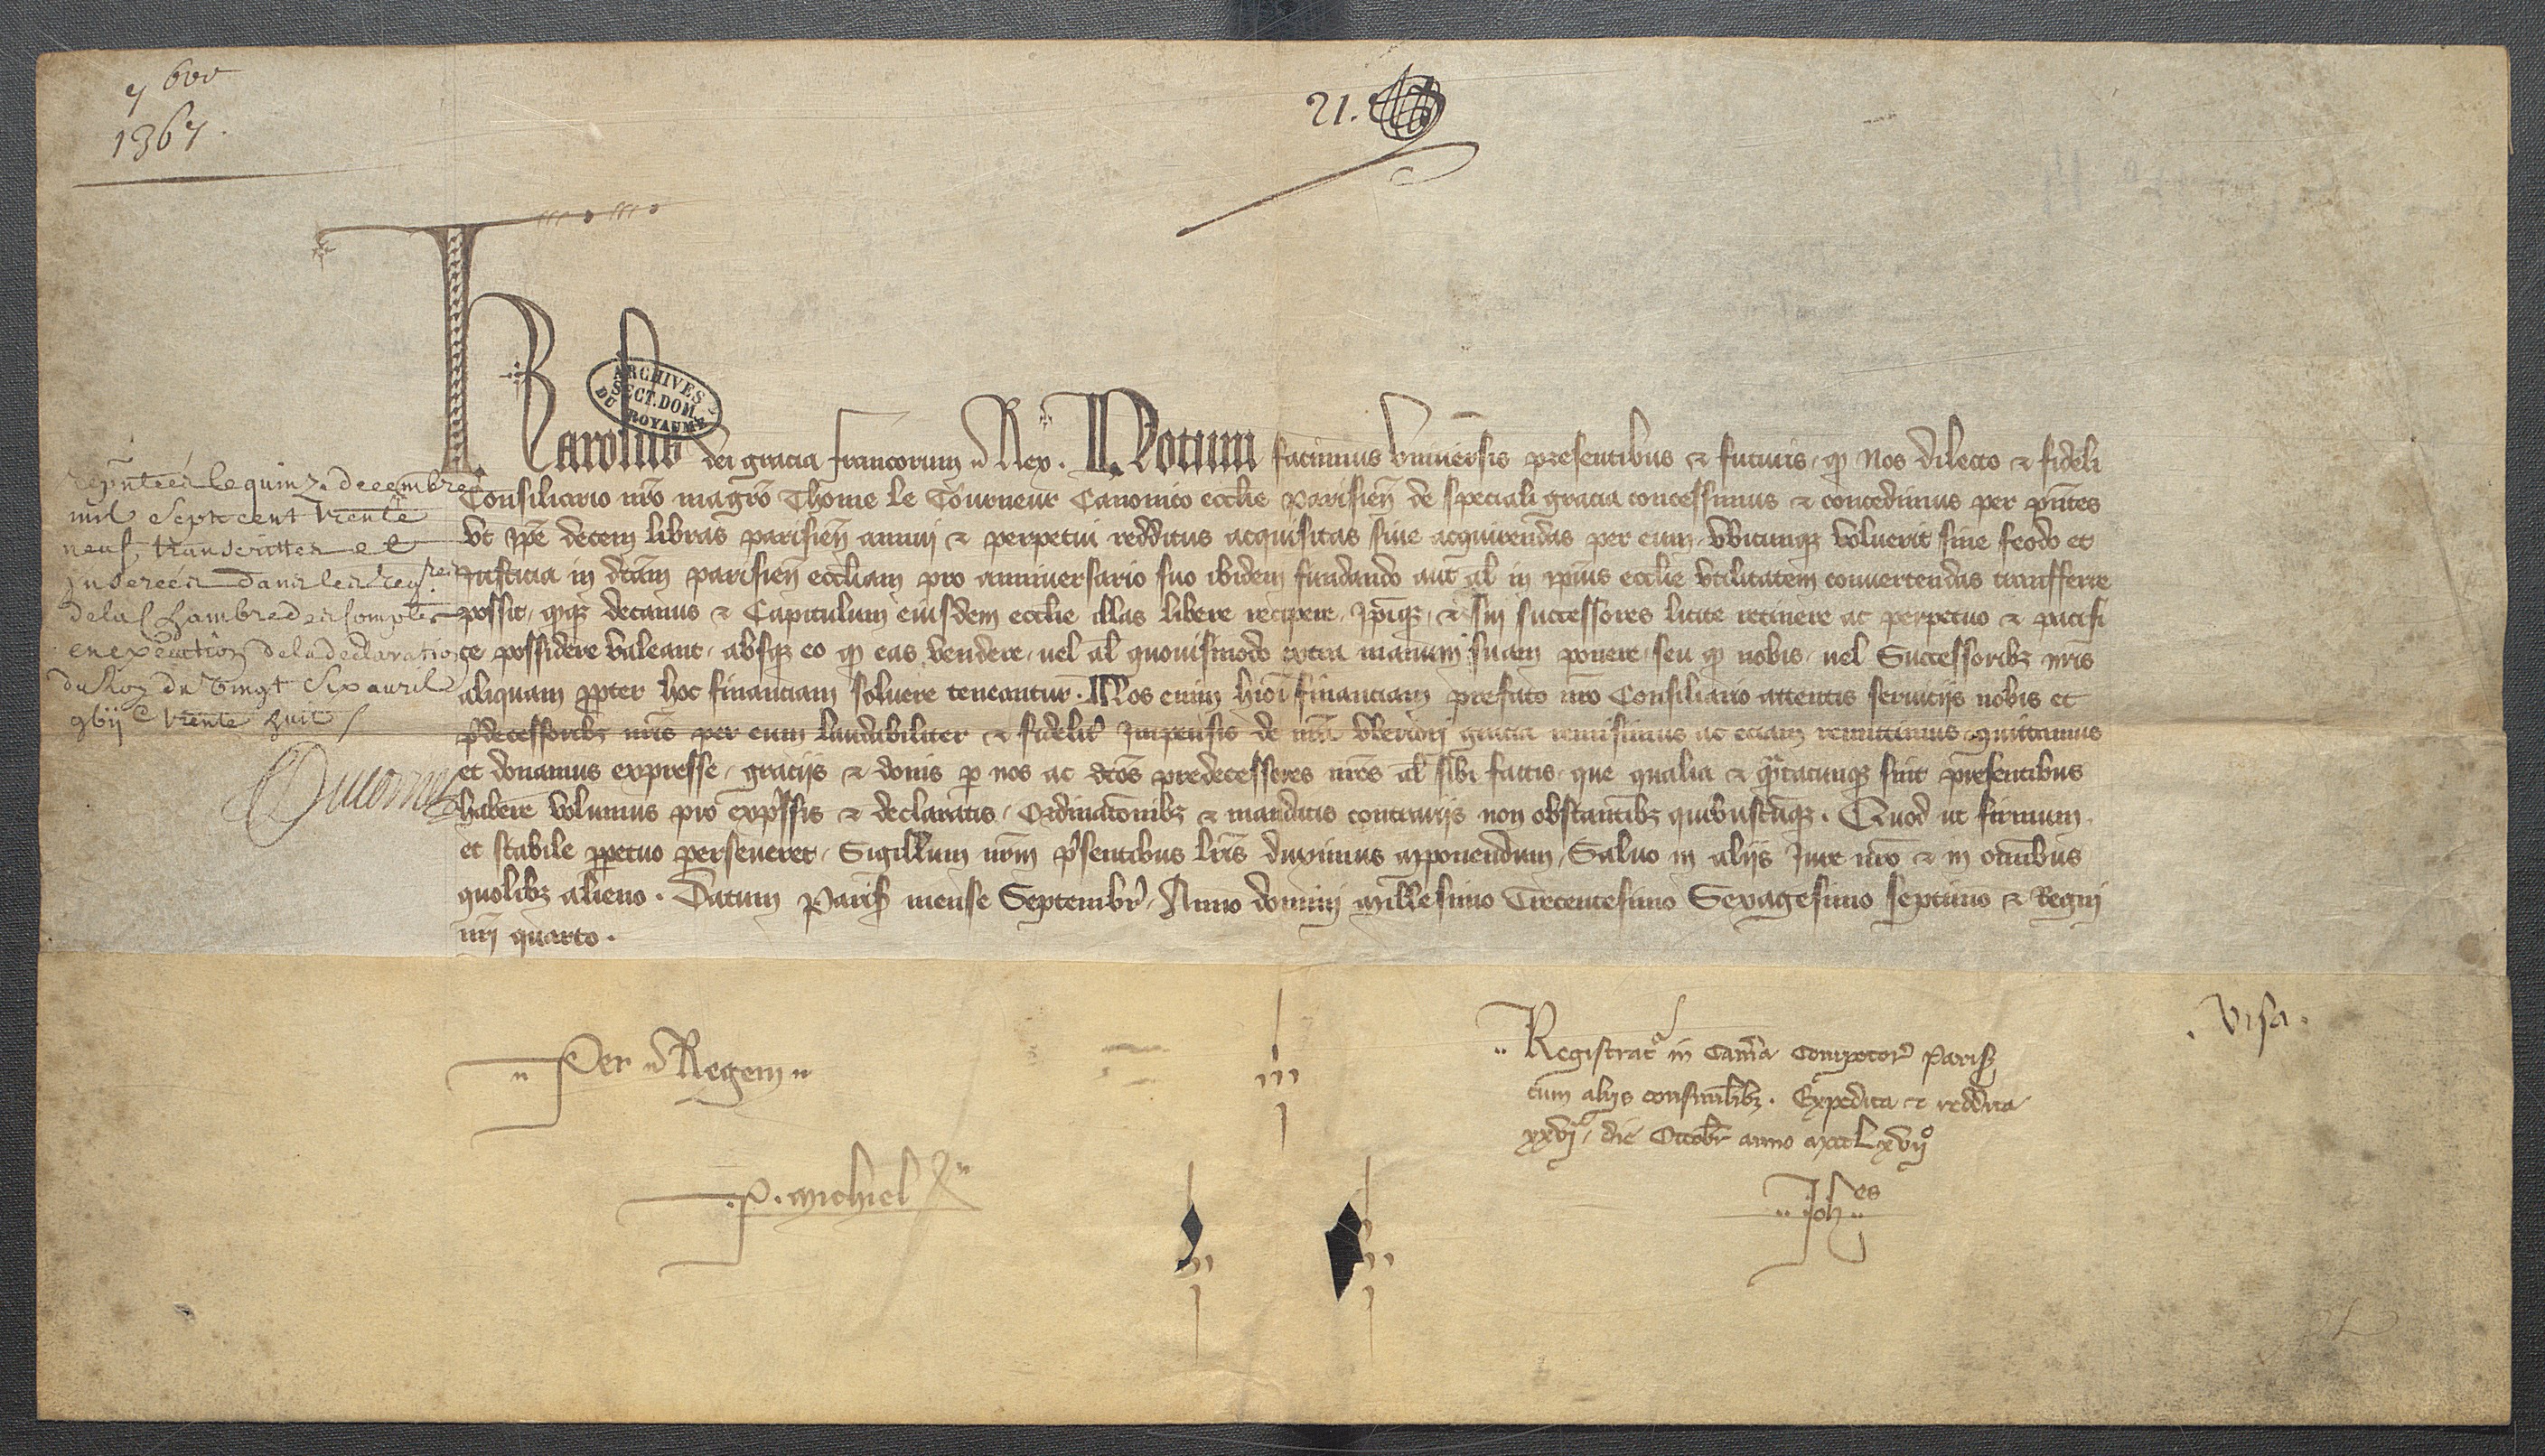 7 bre
1367.
21.
ARCHIVES
SECT. DOM.
DU ROYAUME
Karolus dei gracia francorum Rex. Notum facimus Universis presentibus & futuris, qd Nos dilecto & fideli
Consiliario nro magro Thome le Tourneur Canonico ecclie parisien de speciali gracia concessimus & concedimus per pntes
Ut ipse decem libras parisien annui & perpetui redditus acquisitas sive acquirendas per eum, Ubicunqz voluerit sine feodo et
Justicia in dcam parisien eccliam pro anniversario suo ibidem fundando aut al in ipius ecclie utilitatem convertendas transferre
possit, qqz decanus & Capitulum eiusdem ecclie illas libere recipere, ipiqz & sui successores licite retinere ac perpetuo & pacifi
ce possidere valeant, absqz eo qd eas vendere, vel al quovismodo extra manum suam ponere, seu qd nobis, vel Successoribz nris
aliquam ppter hoc financiam solvere teneantur. Nos enim hmoi financiam prefato nro Consiliario attentis serviciis nobis et
pdecessoribz nris per eum laudabiliter & fidelit Impensis de nra Uberiori gracia remisimus ac eciam remittimus, quittamus
et donamus expresse, graciis & donis p nos ac dcos predecessores nros al sibi factis, que qualia & qntacunqz sint presentibus
habere volumus pro expssis & declaratis, Ordinaconibz & mandatis contrariis non obstantibz quibuscunqz. Quod ut firmum
et stabile ppetuo perseveret, Sigillum nrm psentibus lris duximus apponendum, Salvo in aliis Jure nro & in omnibus
quolibz alieno. Datum Paris mense Septembr, Anno domini Millesimo Trecentesimo Sexagesimo septimo & Regni
nri quarto.
repntées le quinze decembre
mil sept cent trente
neuf, transcrittes et
Inserées dans les regres
de la Chambre des Comptes
en execution de la declaration
du Roy du vingt six avril
gbiic trente huit
Ducornet
Per Regem
P. Michiel
Registrata in Camera Compotor Paris
cum aliis consimilibz. Expedita & reddita
xxvija die Octobr anno mccclxvijo
Johes
Visa.